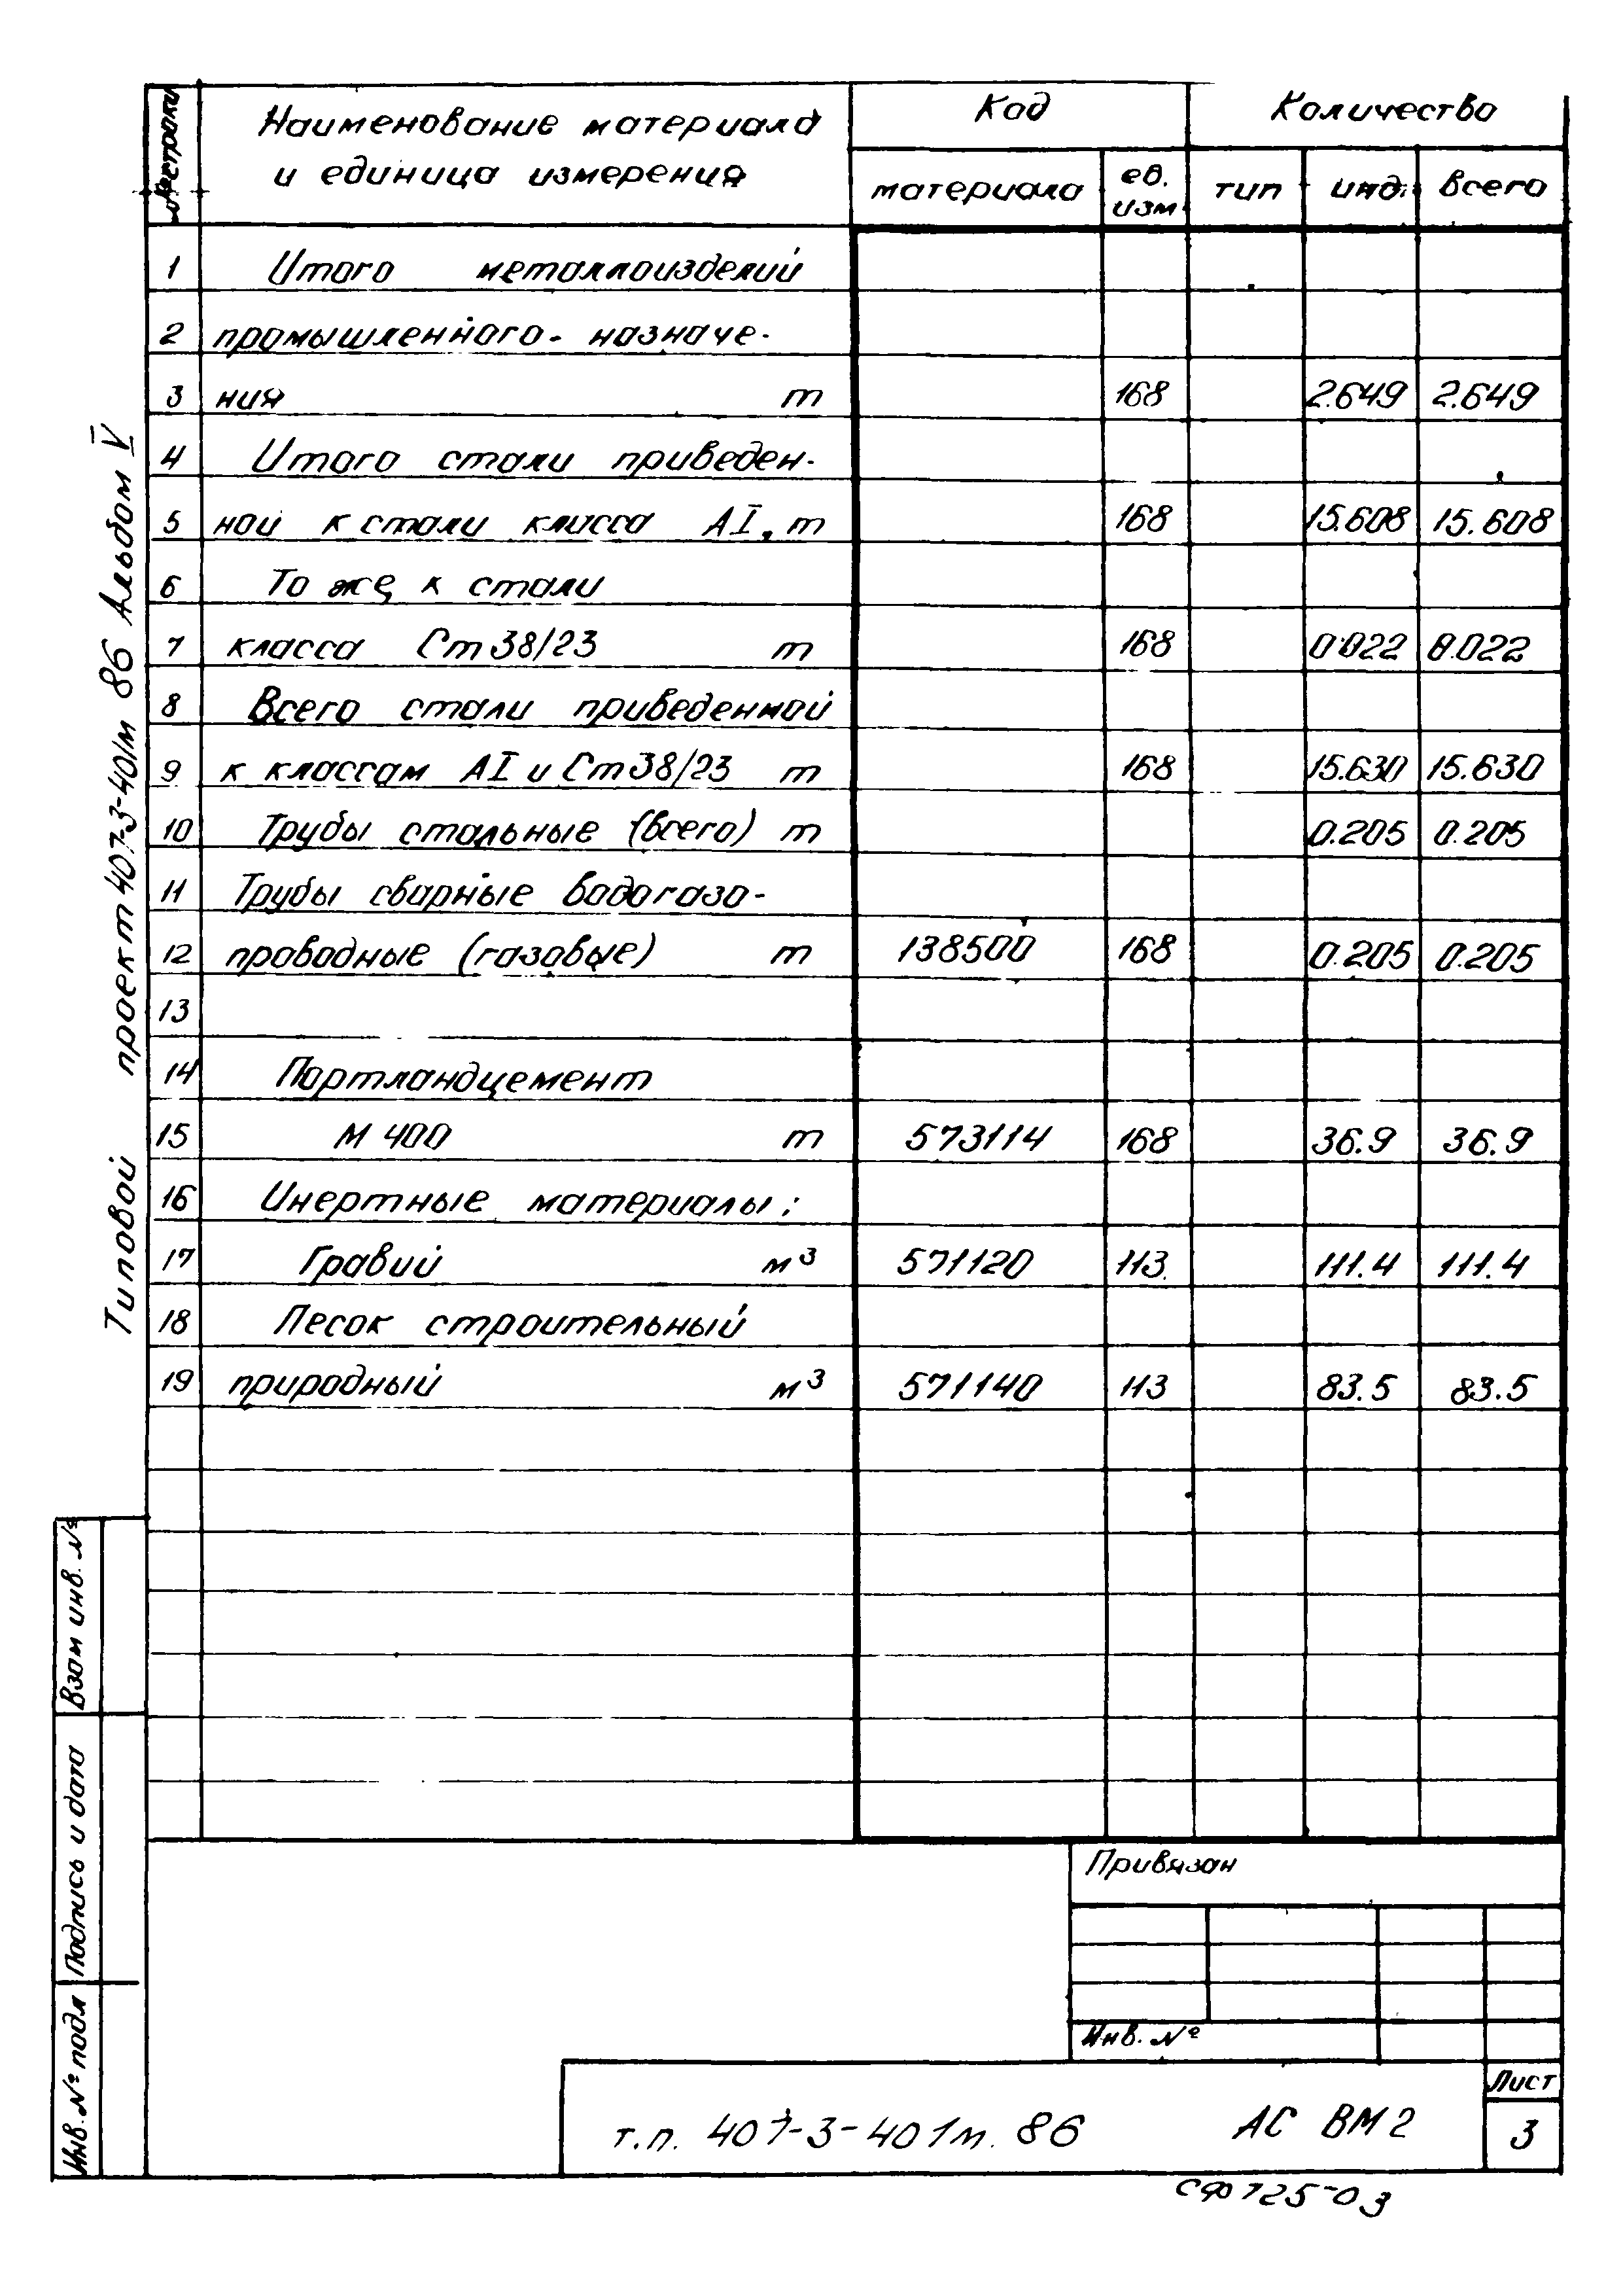 № строки
Наименование материала
и единица измерения
Код
Количество
материала
ед.
изм
тип
инд.
всего
1 Итого металлоизделий
2 промышленного назначе-
3 ния т 168 2.649 2.649
4 Итого стали приведен-
5 ной к стали класса АI, т 168 15.608 15.608
6 То же к стали
7 класса Ст 38/23 т 168 0.022 0.022
8 Всего стали приведенной
9 к классам АI и Ст 38/23 т 168 15.630 15.630
10 Трубы стальные (всего) т 0.205 0.205
11 Трубы сварные водогазо-
12 проводные (газовые) т 138500 168 0.205 0.205
13
14 Портландцемент
15 М 400 т 573114 168 36.9 36.9
16 Инертные материалы:
17 Гравий м³ 571120 113 111.4 111.4
18 Песок строительный
19 природный м³ 571140 113 83.5 83.5
Типовой проект 407-3-401м 86 Альбом V
Взам инв. №
Подпись и дата
Инв. № подл
Привязан
Инв. №
т.п. 407-3-401м. 86 АС ВМ2
Лист
3
СФ 725-03